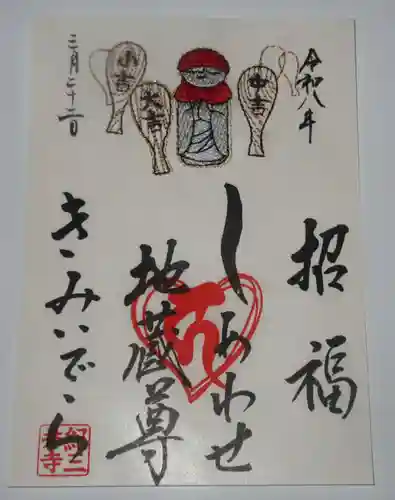 令和八年
三月二十二日
小吉
大吉
中吉
招福
しあわせ
地蔵尊
きみいでら
紀三井寺